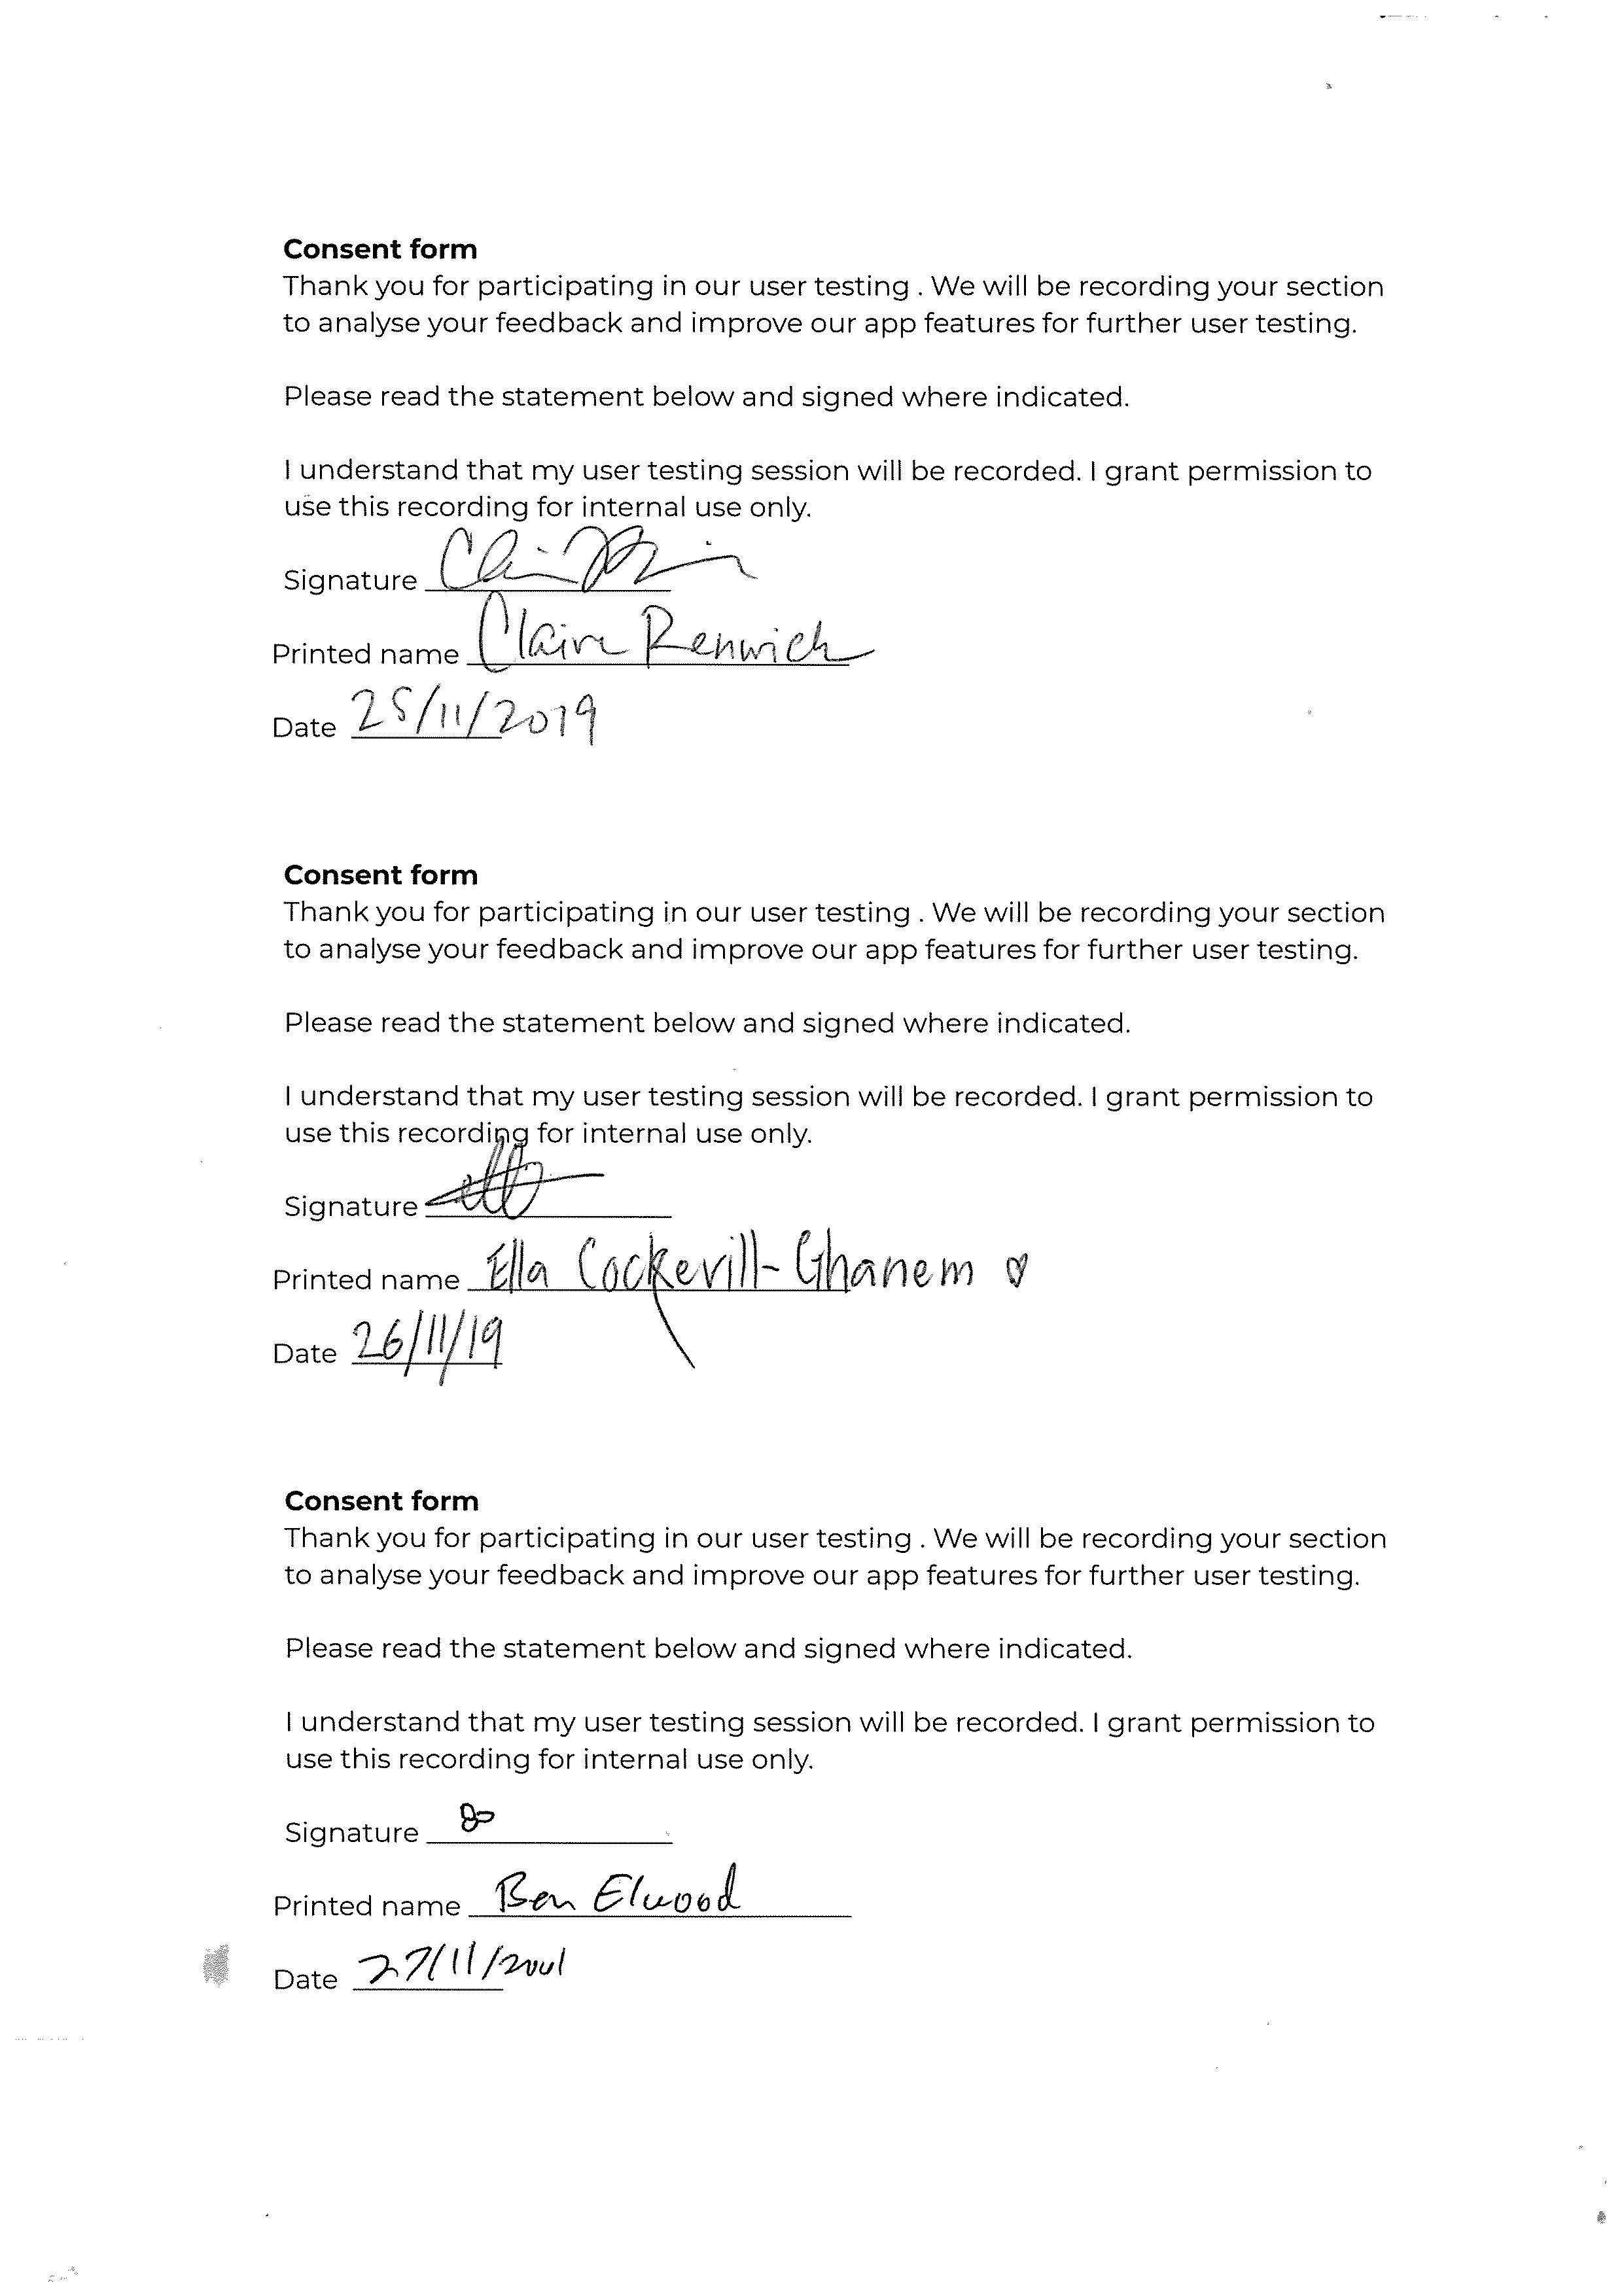 Consent form
Thank you for participating in our user testing . We will be recording your section
to analyse your feedback and improve our app features for further user testing.
Please read the statement below and signed where indicated.
I understand that my user testing session will be recorded. I grant permission to
use this recording for internal use only.
Signature
Printed name Claire Renwick
Date 25/11/2019
Consent form
Thank you for participating in our user testing . We will be recording your section
to analyse your feedback and improve our app features for further user testing.
Please read the statement below and signed where indicated.
I understand that my user testing session will be recorded. I grant permission to
use this recording for internal use only.
Signature
Printed name Ella Cockerill-Ghanem ♡
Date 26/11/19
Consent form
Thank you for participating in our user testing . We will be recording your section
to analyse your feedback and improve our app features for further user testing.
Please read the statement below and signed where indicated.
I understand that my user testing session will be recorded. I grant permission to
use this recording for internal use only.
Signature
Printed name Ben Elwood
Date